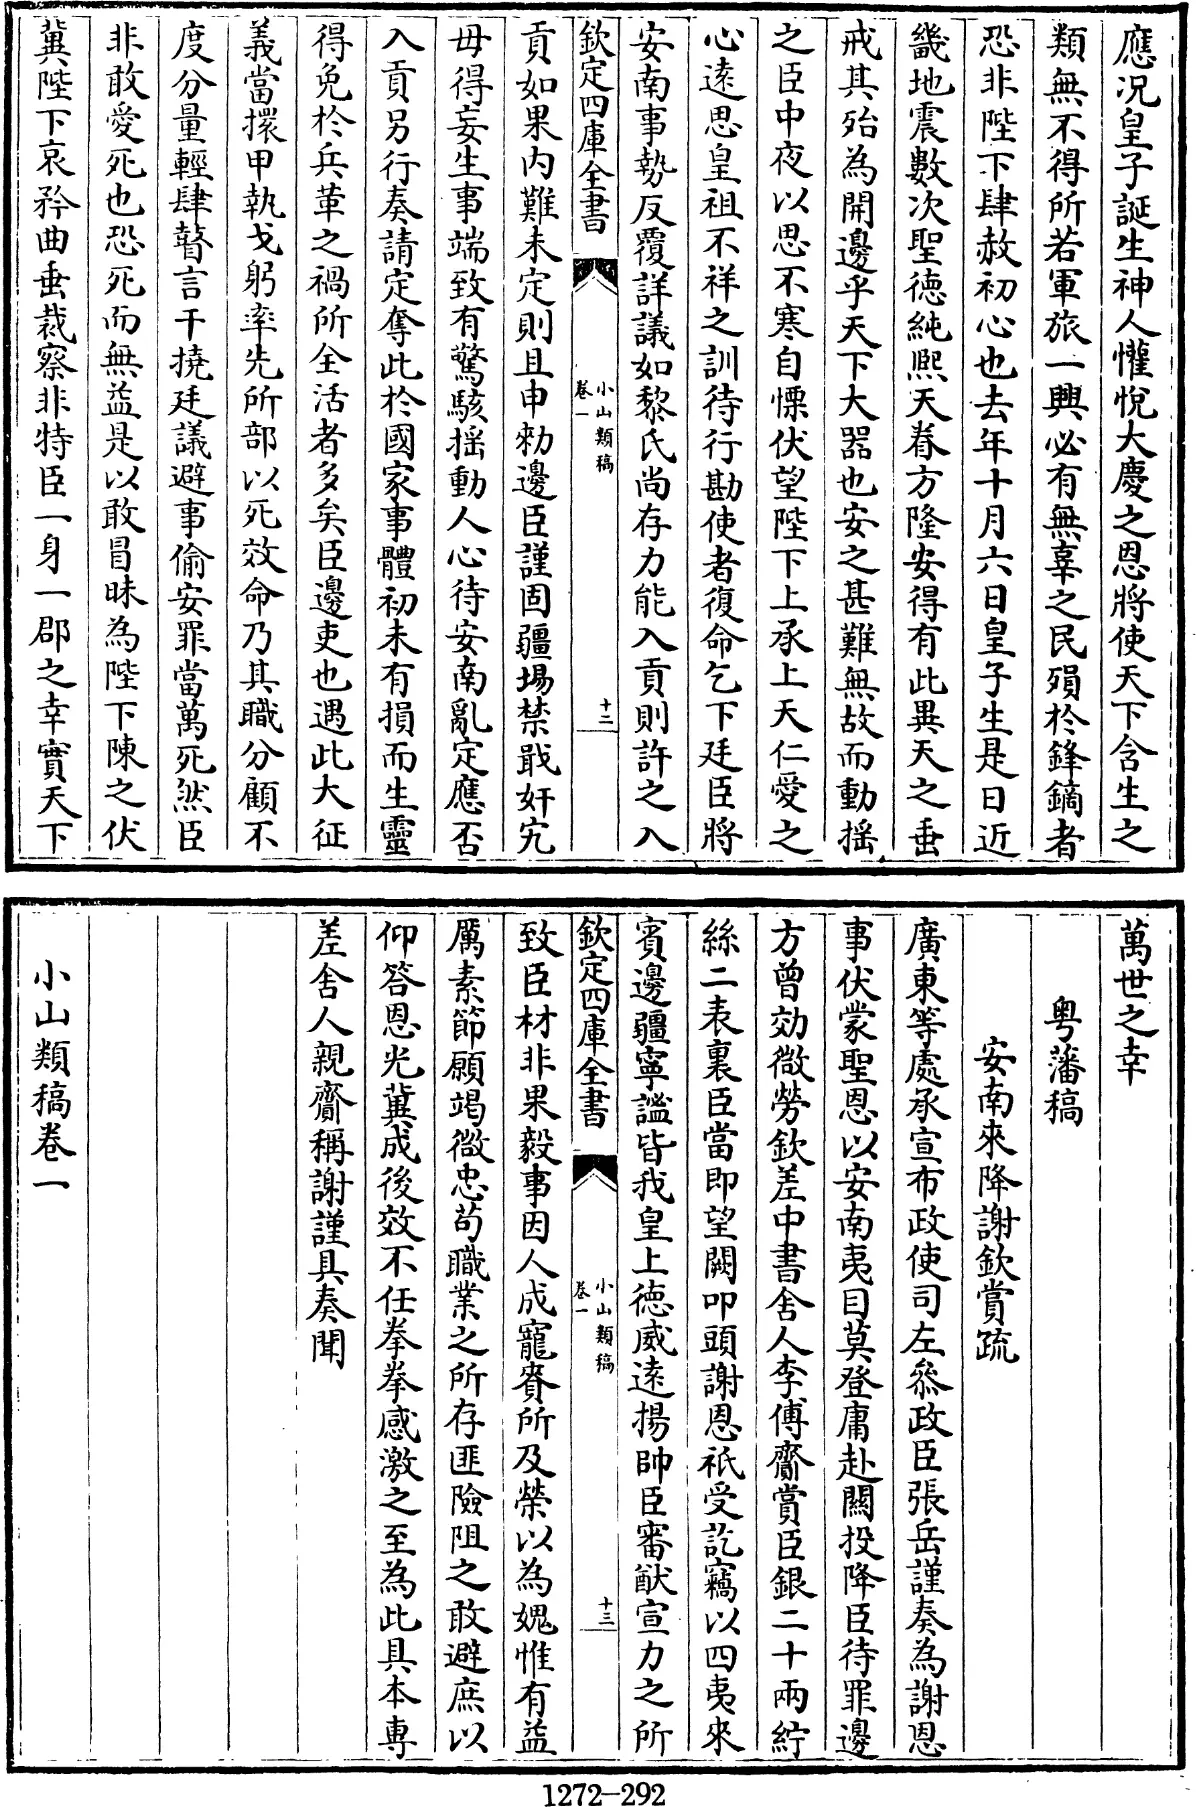 應況皇子誕生神人懽悅大慶之恩將使天下含生之
類無不得所若軍旅一興必有無辜之民殞於鋒鏑者
恐非陛下肆赦初心也去年十月六日皇子生是日近
畿地震數次聖德純熙天眷方隆安得有此異天之垂
戒其殆為開邊乎天下大器也安之甚難無故而動搖
之臣中夜以思不寒自慄伏望陛下上承上天仁愛之
心遠思皇祖不祥之訓待行勘使者復命乞下廷臣將
安南事勢反覆詳議如黎氏尚存力能入貢則許之入
欽定四庫全書
小山類稿
卷一
十二
貢如果內難未定則且申勑邊臣謹固疆埸禁戢奸宄
毋得妄生事端致有驚駭揺動人心待安南亂定應否
入貢另行奏請定奪此於國家事體初未有損而生靈
得免於兵革之禍所全活者多矣臣邊吏也遇此大征
義當擐甲執戈躬率先所部以死效命乃其職分顧不
度分量輕肆瞽言干撓廷議避事偷安罪當萬死然臣
非敢愛死也恐死而無益是以敢冒昧為陛下陳之伏
冀陛下哀矜曲垂裁察非特臣一身一郡之幸實天下
萬世之幸
粵藩稿
安南來降謝欽賞疏
廣東等處承宣布政使司左叅政臣張岳謹奏為謝恩
事伏蒙聖恩以安南夷目莫登庸赴闕投降臣待罪邊
方曾効微勞欽差中書舍人李傅齎賞臣銀二十兩紵
絲二表裏臣當即望闕叩頭謝恩祇受訖竊以四夷來
賓邊疆寧謐皆我皇上德威遠揚帥臣審猷宣力之所
欽定四庫全書
小山類稿
卷一
十三
致臣材非果毅事因人成寵賚所及榮以為媿惟有益
厲素節願竭微忠苟職業之所存匪險阻之敢避庶以
仰答恩光冀成後效不任拳拳感激之至為此具本專
差舍人親齎稱謝謹具奏聞
小山類稿卷一
1272-292